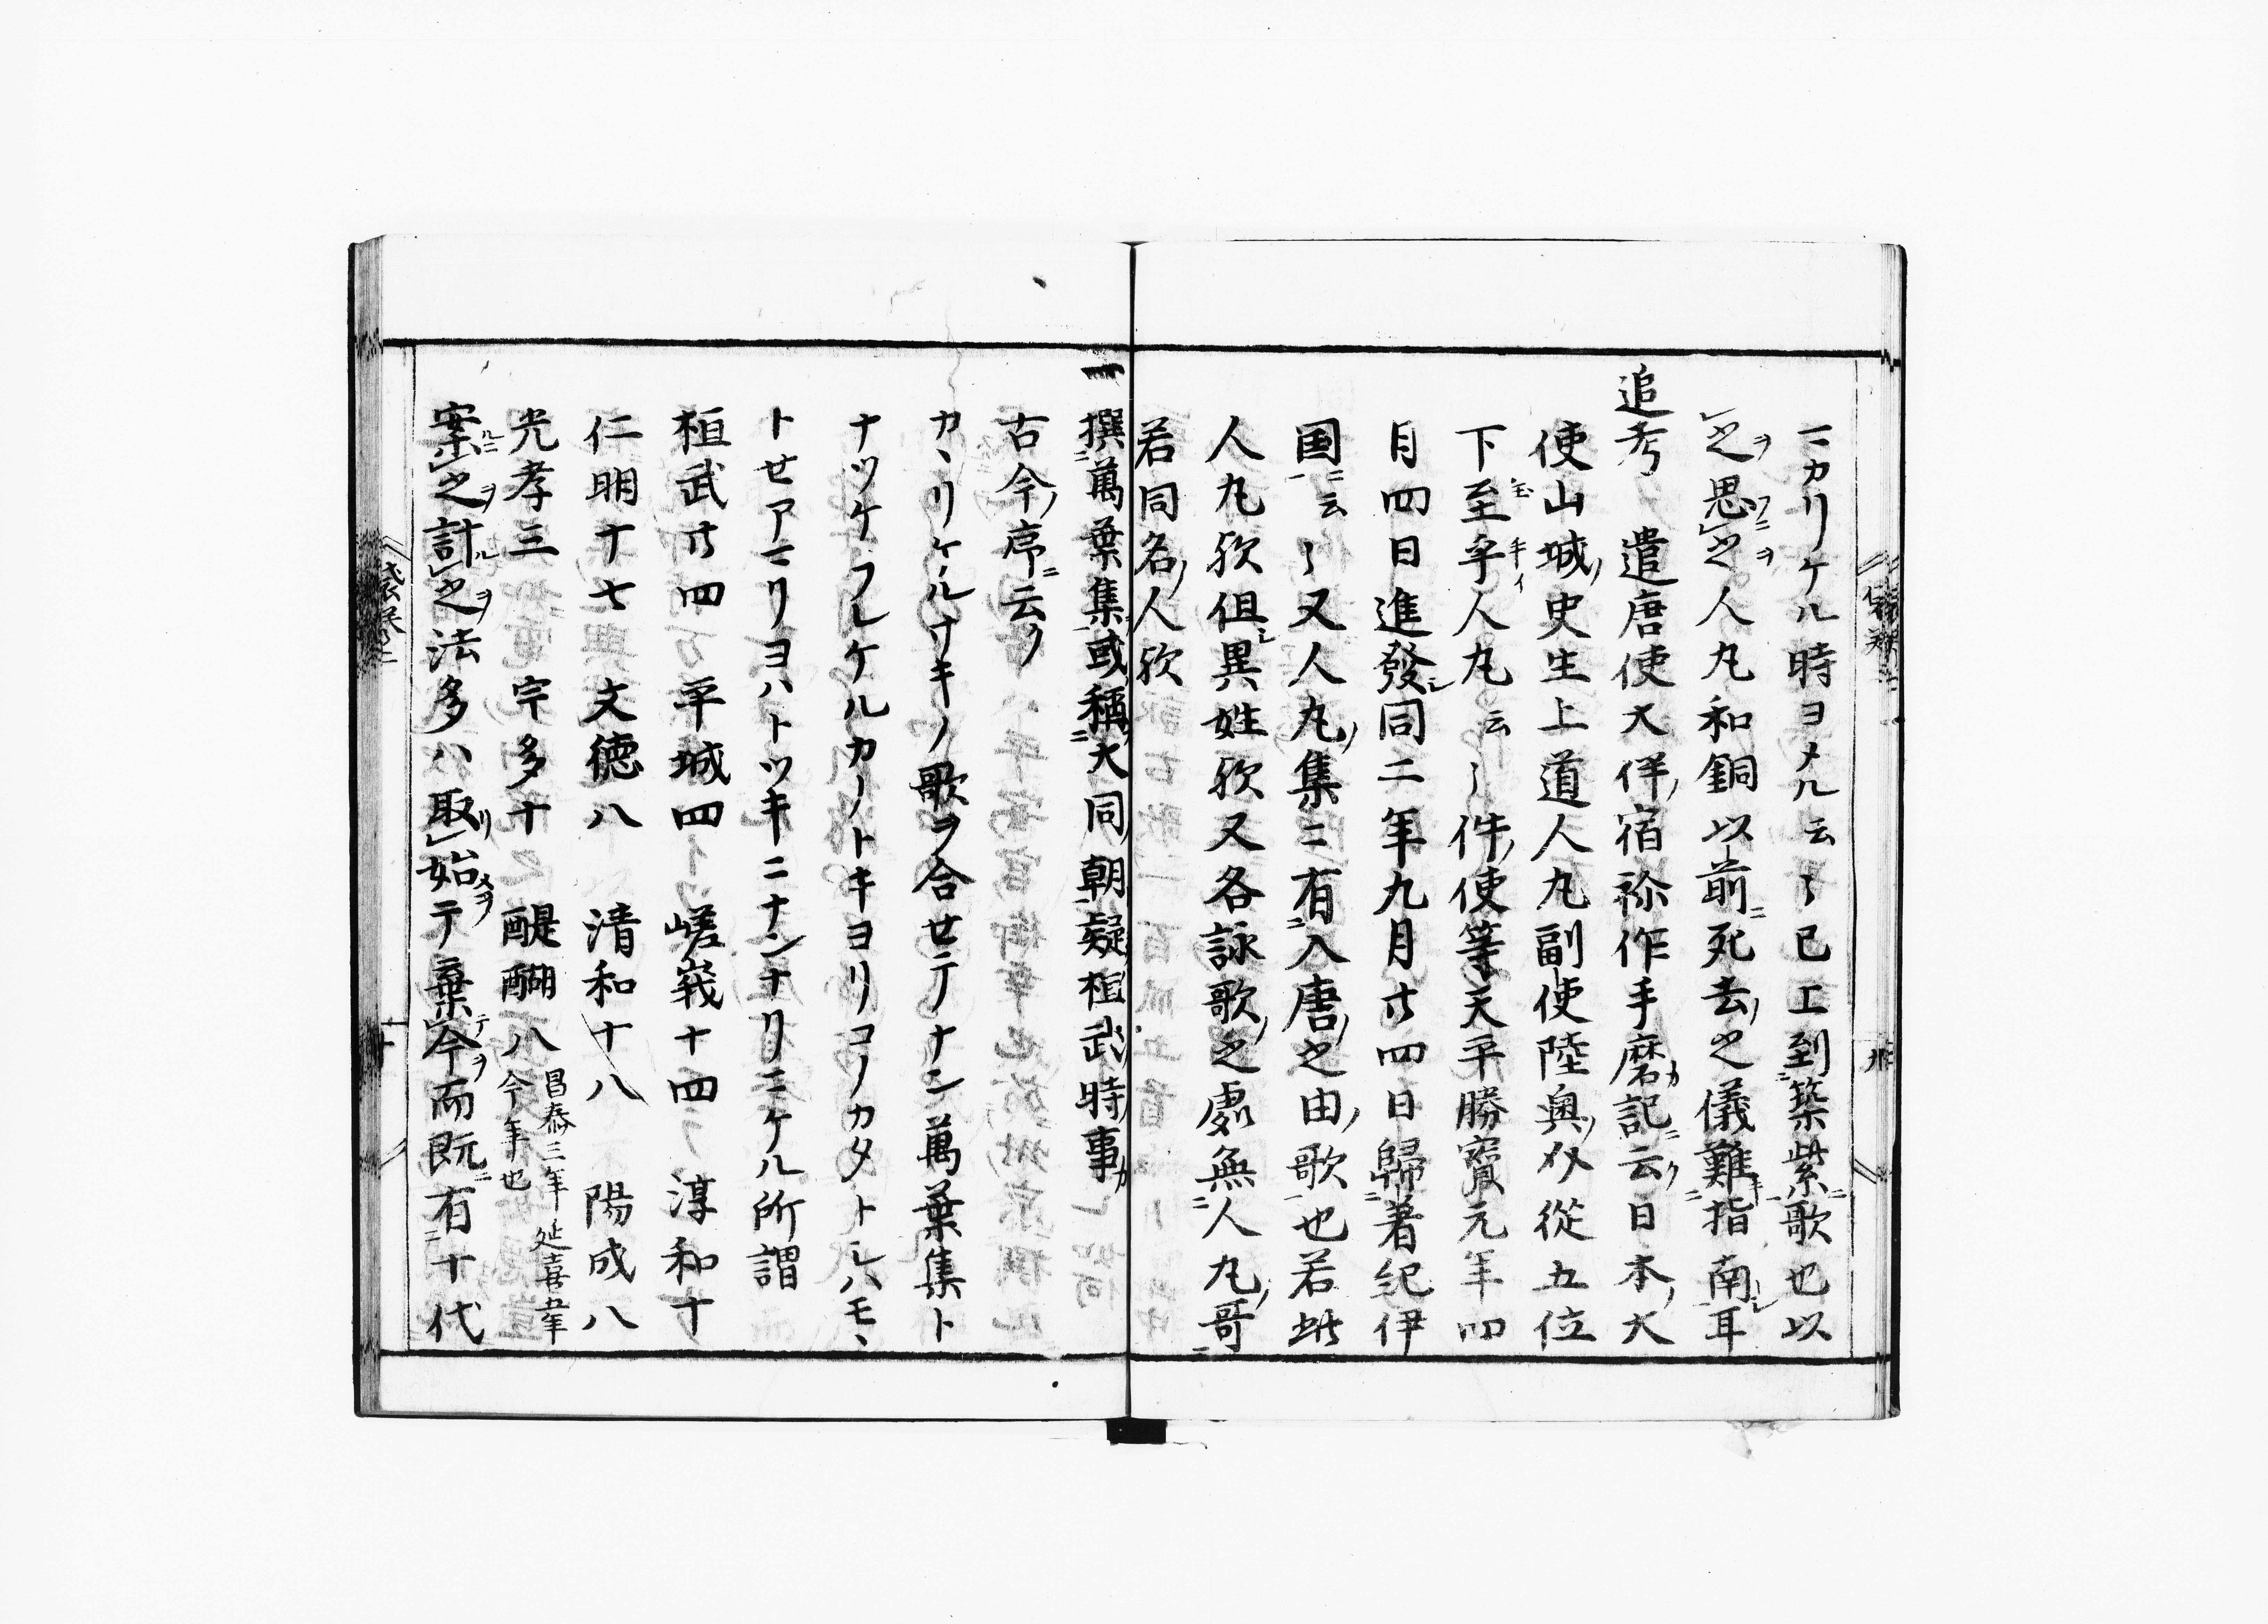 ニカリケル時ヨメル云々已上到築紫歌也以
之思之人丸和銅以前死去之儀難指南耳
追考 遣唐使大伴宿祢作手磨記云日本大
使山城史生上道人丸副使陸奥从從五位
下至手人丸云々件使等天平勝寳元年四
月四日進發同二年九月廿四日歸着紀伊
国云々又人丸集ニ有入唐之由歌也若此
人丸歟但異姓歟又各詠歌之處無人丸哥
若同名人歟
一撰萬葉集或稱大同朝疑桓武時事
古今序云
カヽリケルサキノ歌ヲ合セテナン萬葉集ト
ナツケラレケルカノトキヨリコノカタトシハモヽ
トセアマリヨハトツキニナンナリニケル所謂
桓武廿四 平城四 嵯峩十四 淳和十
仁明十七 文徳八 清和十八 陽成八
光孝三 宇多十 醍醐八 昌泰三年 延喜五年 今年也
案之計之法多ハ取始テ棄今而既有十代